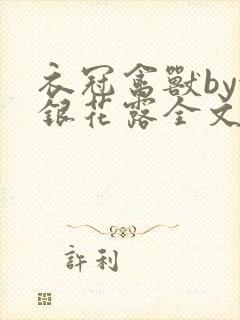 衣冠禽獸by
銀花露全文
許利